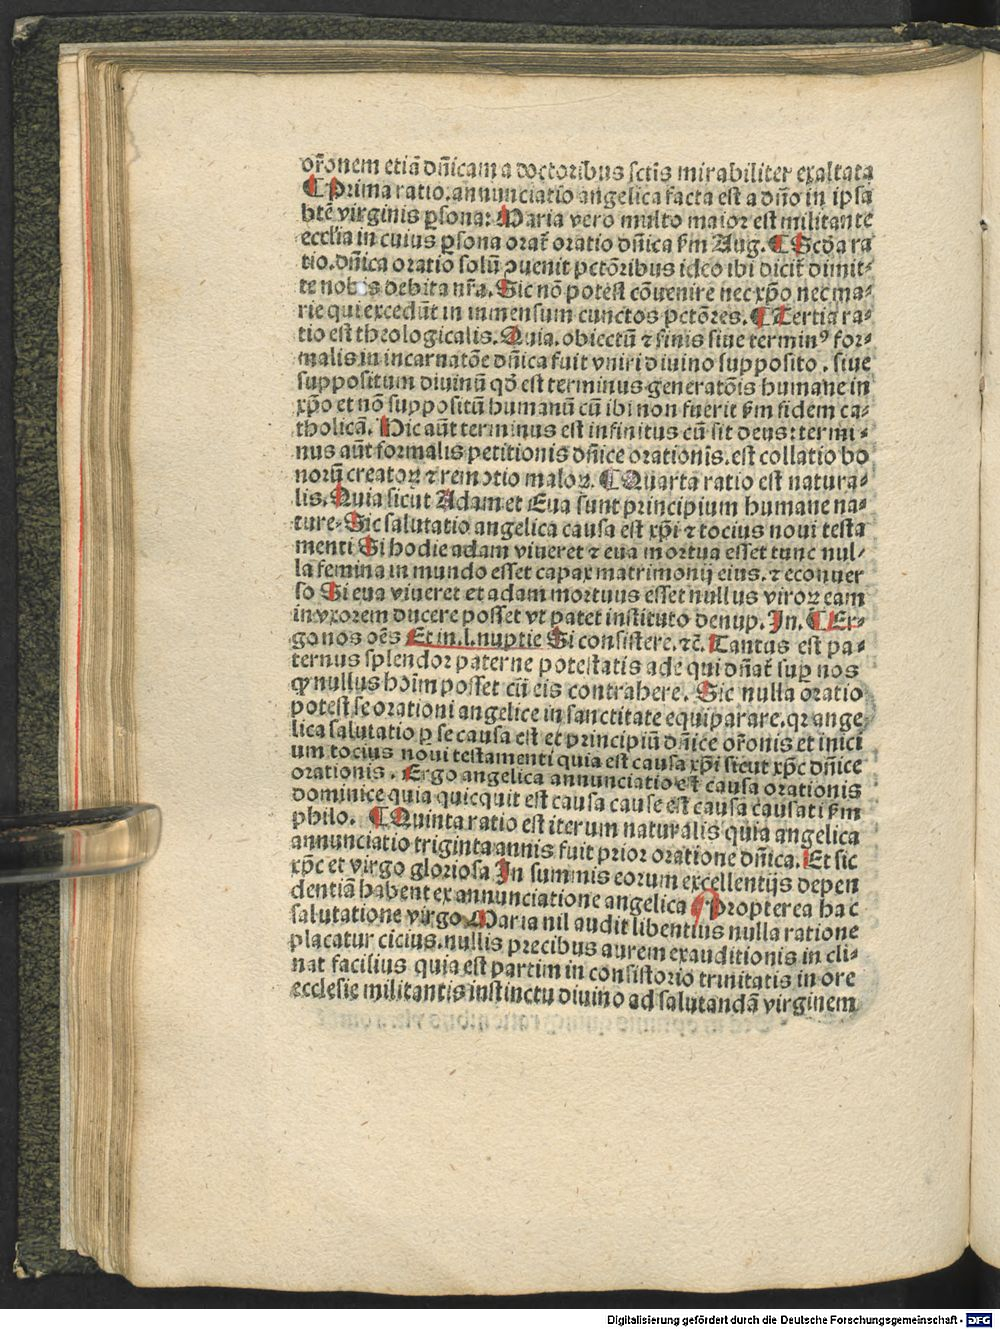 or̄onem etiā dn̄icam a doctoribus sctīs mirabiliter exaltata
¶ Prima ratio. annunciatio angelica facta est a dn̄o in ipsa
btē virginis ꝑsona: Maria vero multo maior est militante
ecclīa in cuius ꝑsona orat̄ oratio dn̄ica ẜm Aug. ¶ Scd̄a ra
tio. dn̄ica oratio solū ꝯuenit pctōribus ideo ibi dicit̄ dimit⸗
te nobis debita nr̄a. Sic nō potest cōuenire nec xp̄o nec ma⸗
rie qui excedūt in inmensum cunctos pctōres. ¶ Tertia ra⸗
tio est theologicalis. Quia. obiectū ⁊ finis siue terminꝰ for⸗
malis in incarnatōe dn̄ica fuit vniri diuino supposito. siue
suppositum diuinū qd̄ est terminus generatōis humane in
xp̄o et nō suppositū humanū cū ibi non fuerit ẜm fidem ca⸗
tholicā. Hic aūt terminus est infinitus cū sit deus: termi⸗
nus aūt formalis petitionis dn̄ice orationis. est collatio bo
norū creatoꝝ ⁊ remotio maloꝝ. ¶ Quarta ratio est natura⸗
lis. Quia sicut Adam et Eua sunt principium humane na⸗
ture. Sic salutatio angelica causa est xp̄i ⁊ tocius noui testa
menti Si hodie adam viueret ⁊ eua mortua esset tunc nul⸗
la femina in mundo esset capax matrimonij eius. ⁊ econuer
so Si eua viueret et adam mortuus esset nullus viroꝝ eam
in vxorem ducere posset vt patet instituto de nup. In. ¶ Er⸗
go nos oēs Et in. l. nuptie Si consistere. ⁊c̄. Tantus est pa⸗
ternus splendor paterne potestatis ade qui dn̄at̄ suꝑ nos
ꝙ nullus hoīm posset cū eis contrahere. Sic nulla oratio
potest se orationi angelice in sanctitate equiparare. qꝛ ange
lica salutatio ꝑ se causa est et principiū dn̄ice or̄onis et inici
um tocius noui testamenti quia est causa xp̄i sicut xp̄c dn̄ice
orationis. Ergo angelica annunciatio est causa orationis
dominice quia quicquit est causa cause est causa causati ẜm
philo. ¶ Quinta ratio est iterum naturalis quia angelica
annunciatio triginta annis fuit prior oratione dn̄ica. Et sic
xp̄c et virgo gloriosa In summis eorum excellentijs depen
dentiā habent ex annunciatione angelica ¶ Propterea hac
salutatione virgo Maria nil audit libentius nulla ratione
placatur cicius. nullis precibus aurem exauditionis in cli⸗
nat facilius quia est partim in consistorio trinitatis in ore
ecclesie militantis instinctu diuino ad salutandā virginem
Digitalisierung gefördert durch die Deutsche Forschungsgemeinschaft - DFG